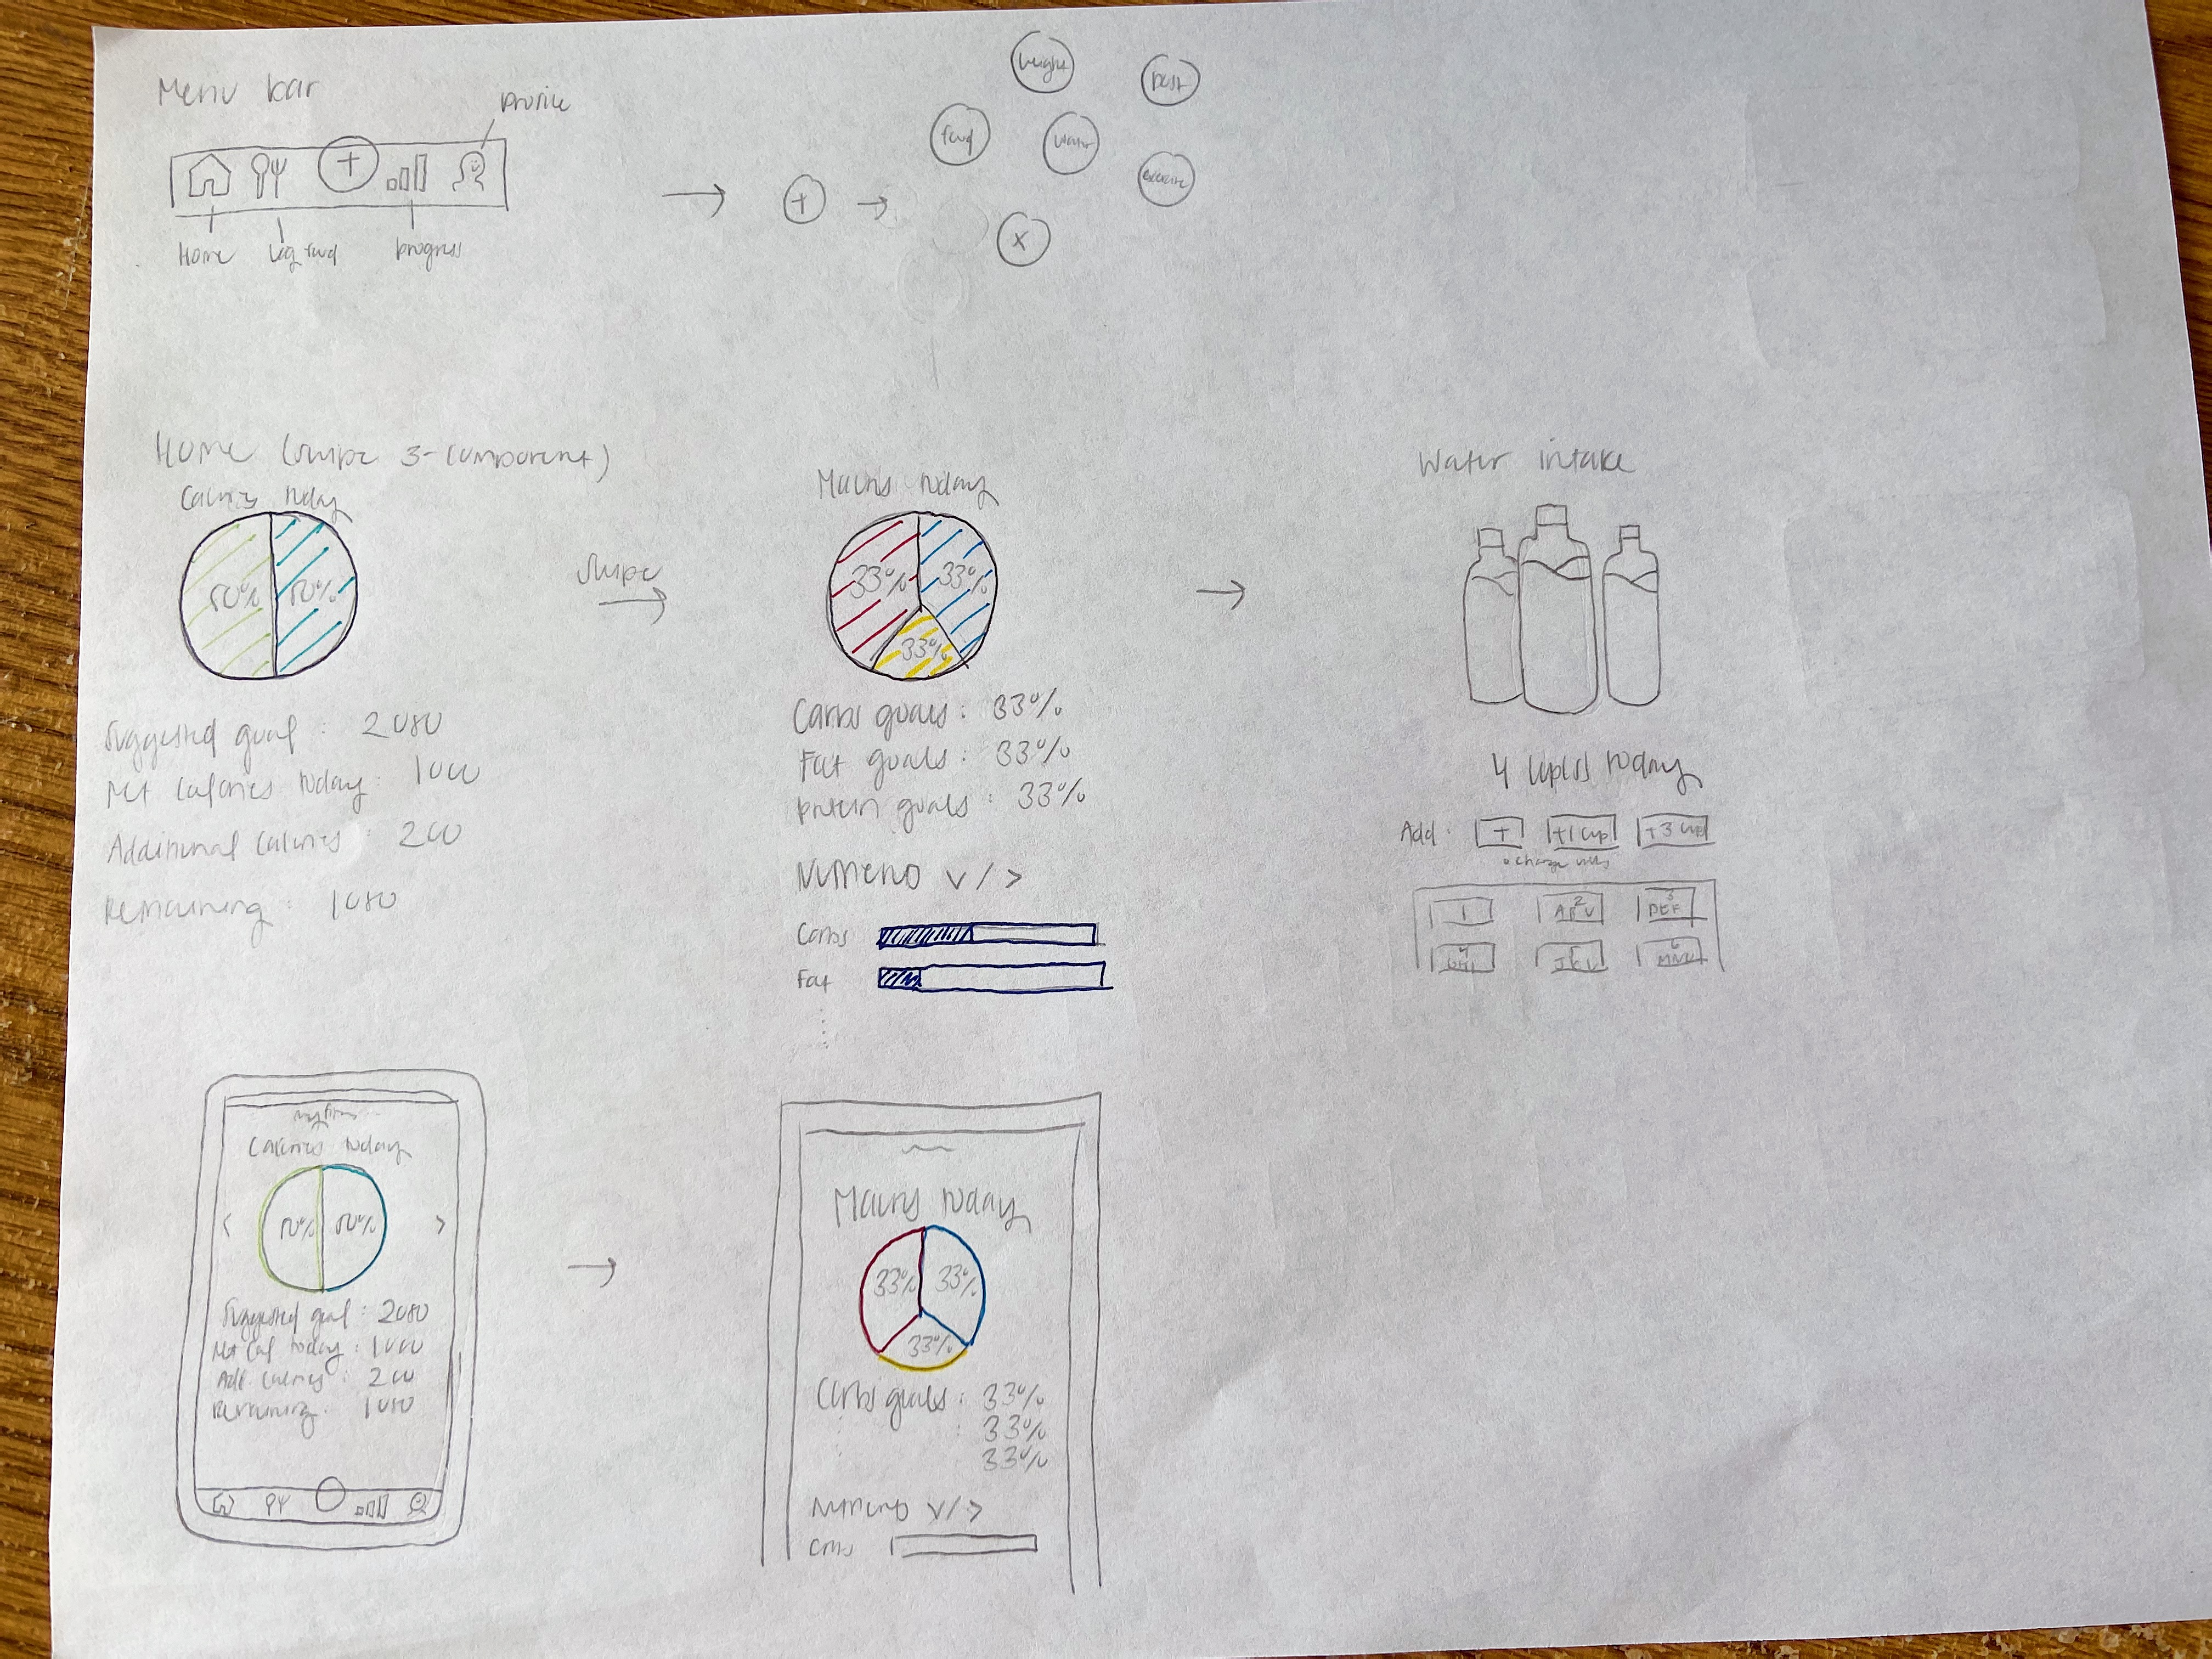 Menu bar
profile
+
Home
Log food
progress
+
weight
post
food
water
exercise
X
Home (swipe 3-component)
Calories today
50% 50%
Suggested goal : 2080
Net calories today : 1000
Additional calories : 200
Remaining : 1080
swipe
Macros today
33% 33%
33%
Carbs goals : 33%
Fat goals : 33%
protein goals : 33%
Nutrients v / >
Carbs
Fat
Water intake
4 cup(s) today
Add : + +1 cup +3 cup
change units
1 2 ABC 3 DEF
4 GHI 5 JKL 6 MNO
Calories today
< 50% 50% >
Suggested goal : 2080
Net cal today : 1000
Add. calories : 200
Remaining : 1080
Macros today
33% 33%
33%
Carbs goals : 33%
: 33%
33%
Nutrients v / >
Carbs